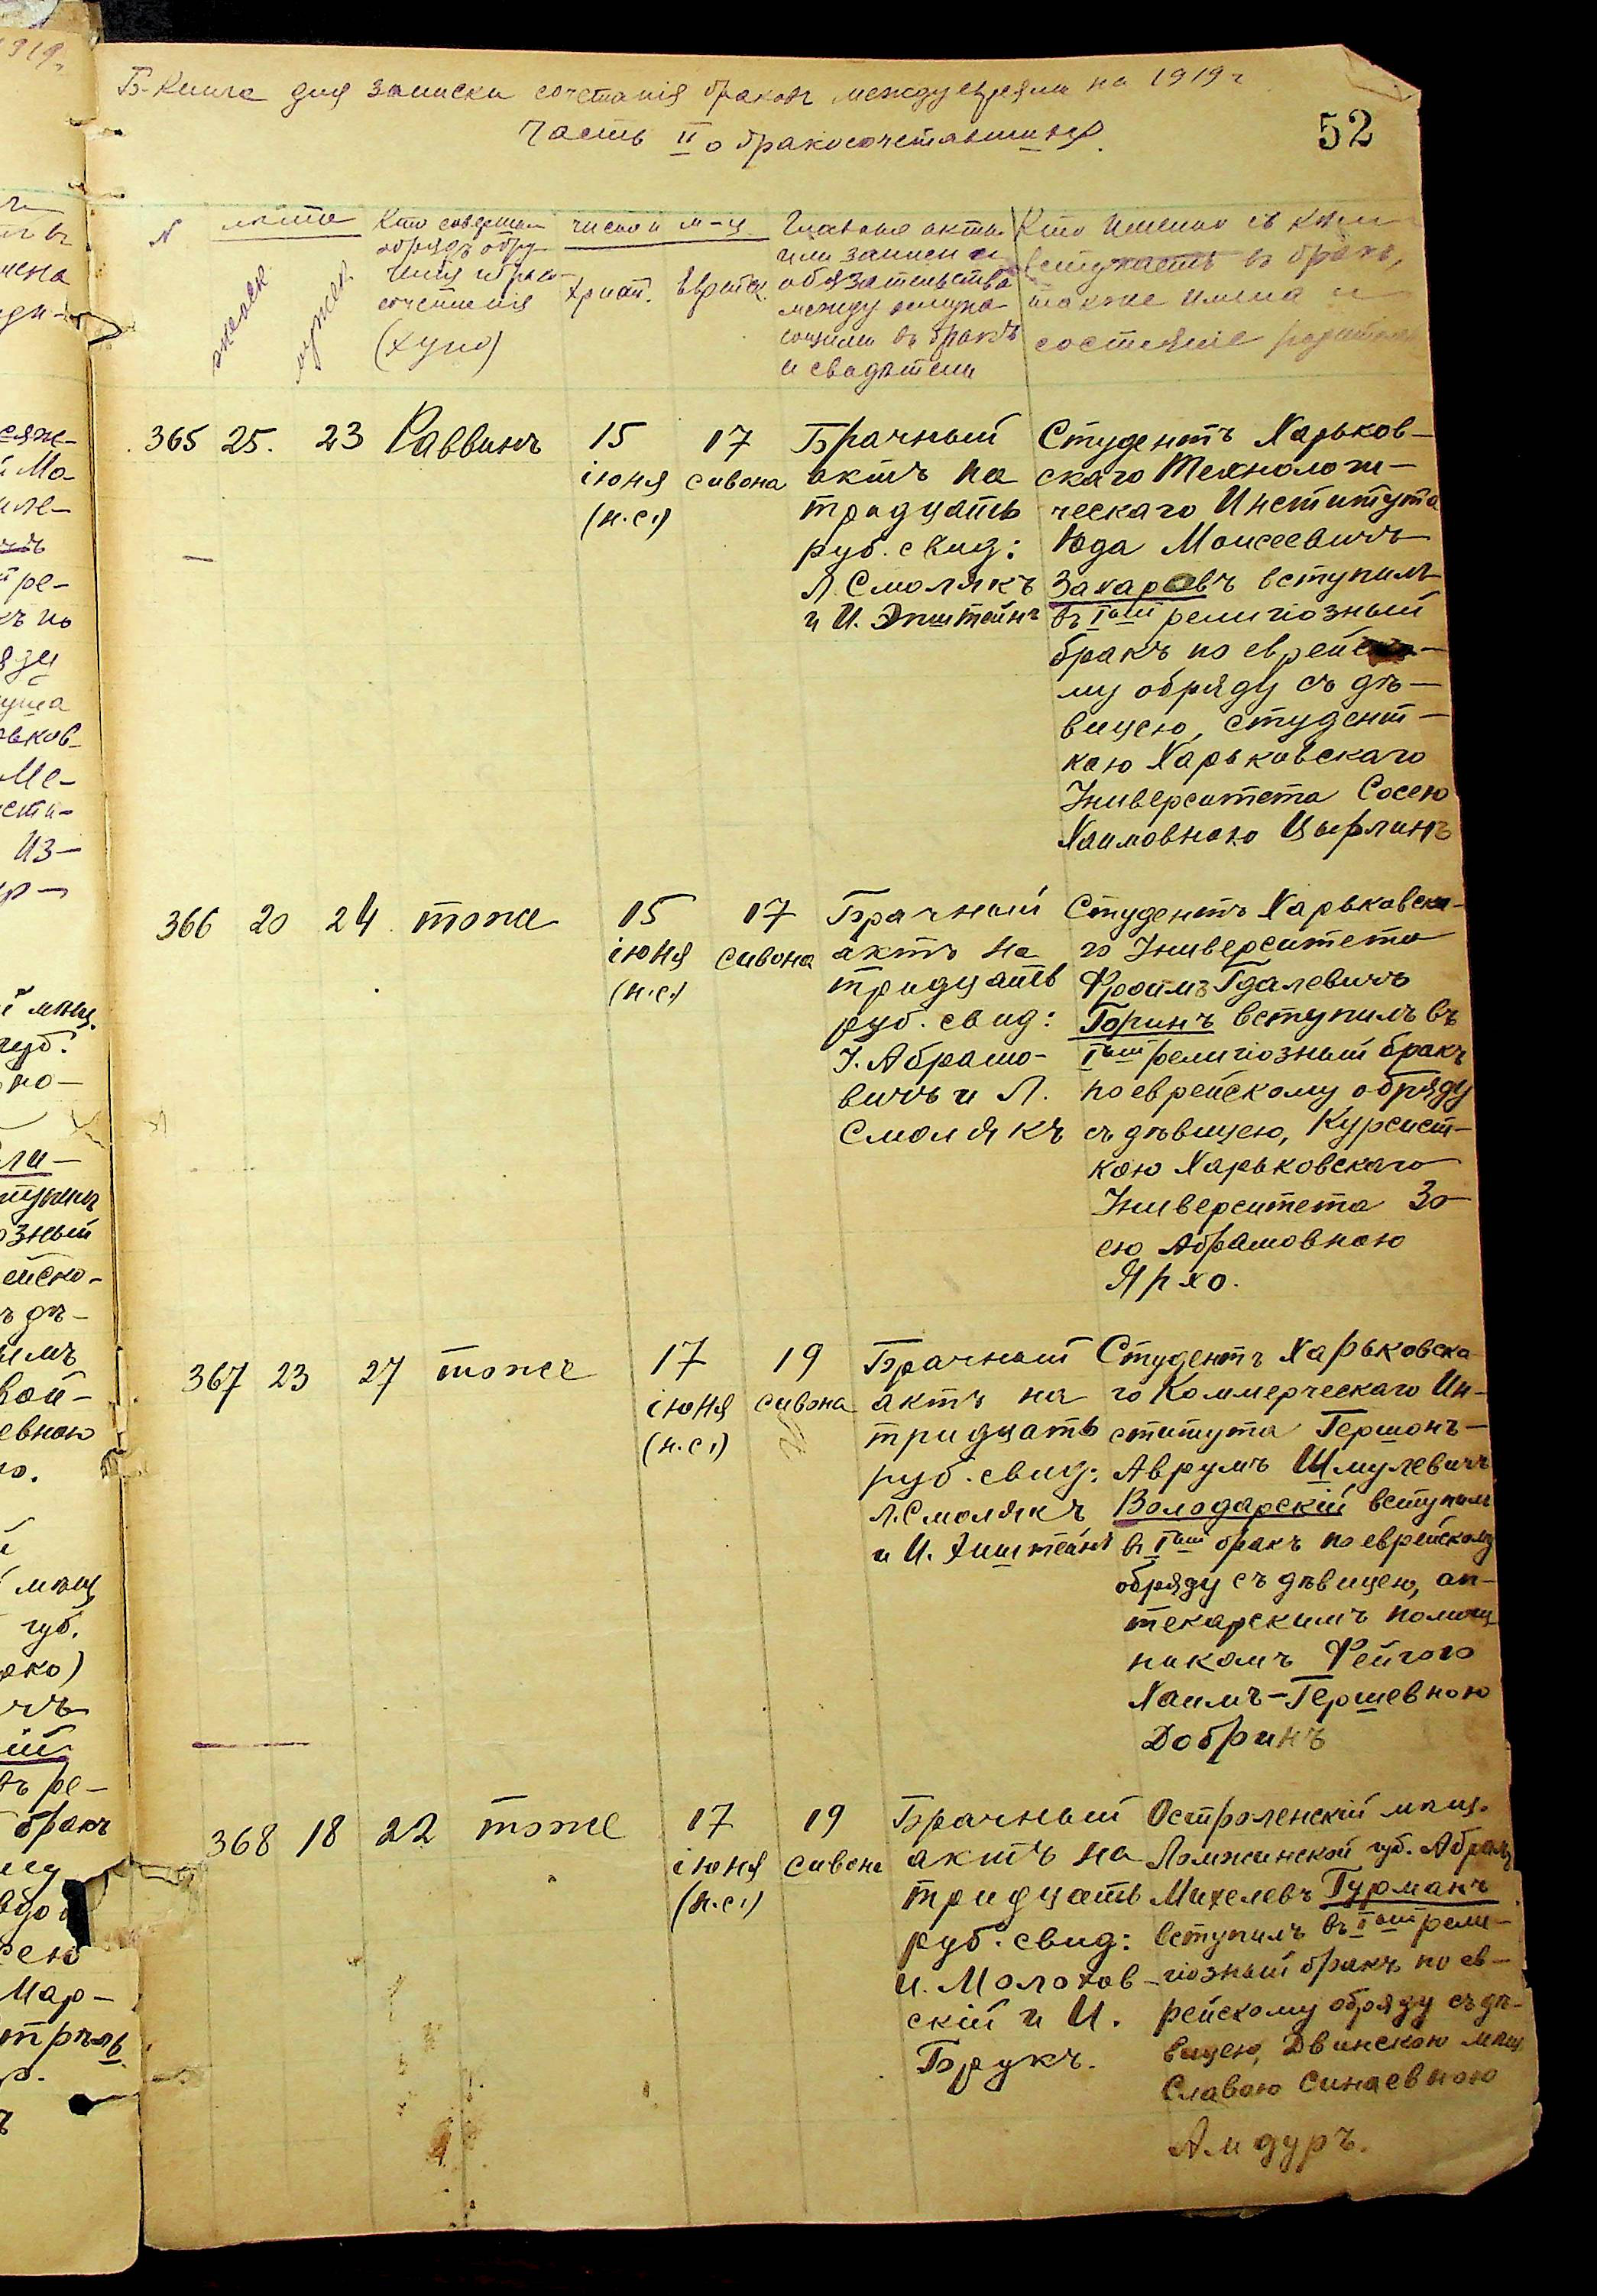 Б-Книга для записки сочетанія браковъ между евреями на 1919 г
52
Часть II о бракосочетавшихся.
N
лѣта
женск
мужск
Кто совершал
обрядъ обру-
ченія и брако-
сочетанія
(хупо)
число и м-ц
христ.
еврейск
Главные акты
или записи и
обязательства
между вступа
ющими въ бракъ
и свидѣтели
Кто именно съ кѣм
вступаетъ въ бракъ,
также имена и
состояніе родителей
365 25. 23 Раввинъ
15
іюня
(н.с.)
17
сивона
Брачный
актъ на
тридцать
руб. свид:
Л. Смолякъ
и И. Эпштейнъ
Студентъ Харьков-
скаго Технологи-
ческаго Института
Юда Моисеевичъ
Захаровъ вступилъ
въ Iый религіозный
бракъ по еврейско-
му обряду съ дѣ-
вицею, студент-
кою Харьковскаго
Университета Сосею
Хаимовною Цырлинъ
366 20 24 тоже
15
іюня
(н.с.)
17
сивона
Брачный
актъ на
тридцать
руб. свид:
І. Абрамо-
вичъ и Л.
Смолякъ
Студентъ Харьковска-
го Университета
Фроимъ Гдалевичъ
Горинъ вступилъ въ
Iый религіозный бракъ
по еврейскому обряду
съ дѣвицею, Курсист-
кою Харьковскаго
Университета Зо-
ею Абрамовною
Ярхо.
367 23 27 тоже
17
іюня
(н.с.)
19
сивона
Брачный
актъ на
тридцать
руб. свид:
Л. Смолякъ
и И. Эпштейнъ
Студентъ Харьковска-
го Коммерческаго Ин-
ститута Гершонъ-
Аврумъ Шмулевичъ
Володарскій вступилъ
въ Iый бракъ по еврейскому
обряду съ дѣвицею, ап-
текарскимъ помощ
никомъ Фейгою
Хаимъ-Гершевною
Добринъ
368 18 22 тоже
17
іюня
(н.с.)
19
сивона
Брачный
актъ на
тридцать
руб. свид:
И. Молохов-
скій и И.
Брукъ.
Остроленскій мѣщ.
Ломжинской губ. Абрамъ
Михелевъ Гурманъ
вступилъ въ Iый рели-
гіозный бракъ по ев-
рейскому обряду съ дѣ-
вицею, Двинскою мѣщ
Славою Синаевною
Амдуръ.